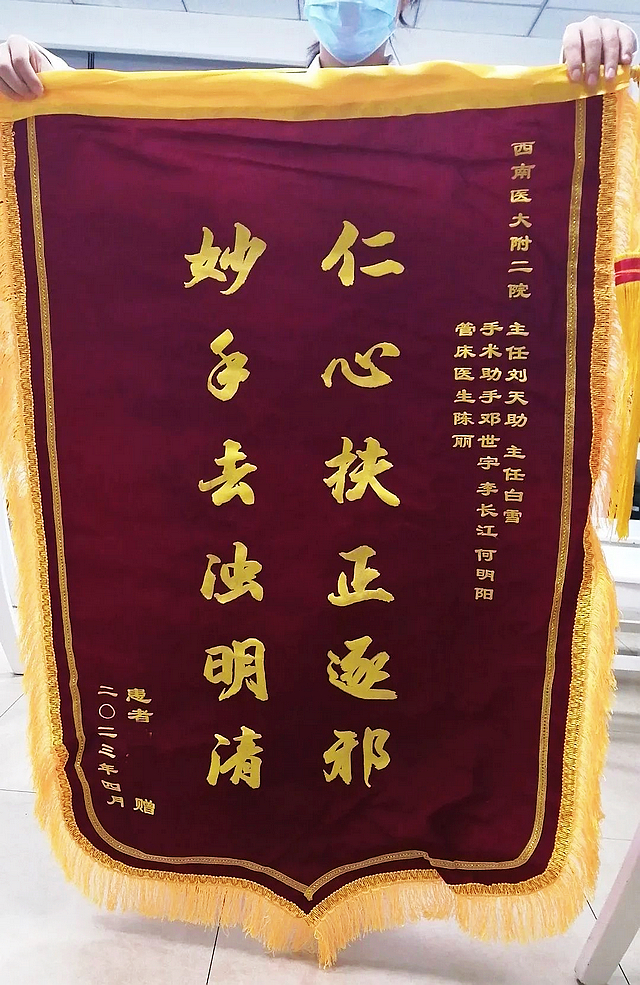 西南医大附二院
主任刘天助 主任白雪
手术助手邓世宇 李长江 何明阳
管床医生陈丽
仁心扶正逐邪
妙手去浊明清
患者 赠
二〇二三年四月